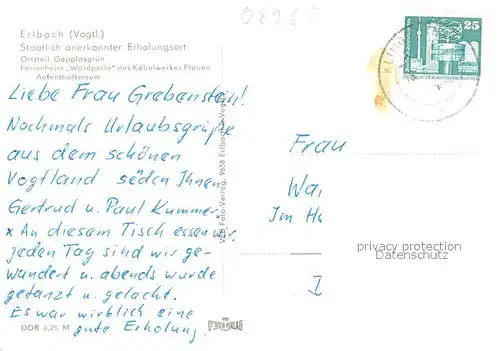 Erlbach (Vogtl.)
Staatlich anerkannter Erholungsort
Ortsteil Gopplasgrün
Ferienheim „Waldperle" des Kabelwerkes Plauen
Aufenthaltsraum
08265
25
Liebe Frau Grabenstein!
Nochmals Urlaubsgrüße
aus dem schönen
Vogtland senden Ihnen
Gertrud u. Paul Kummer.
x An diesem Tisch essen wir.
jeden Tag sind wir ge-
wandert u. abends wurde
getanzt u. gelacht.
Es war wirklich eine
gute Erholung.
DDR 0,25 M
Foto-Verlag, 9658 Erlbach-Vogtl.
Frau
Im
privacy protection
Datenschutz